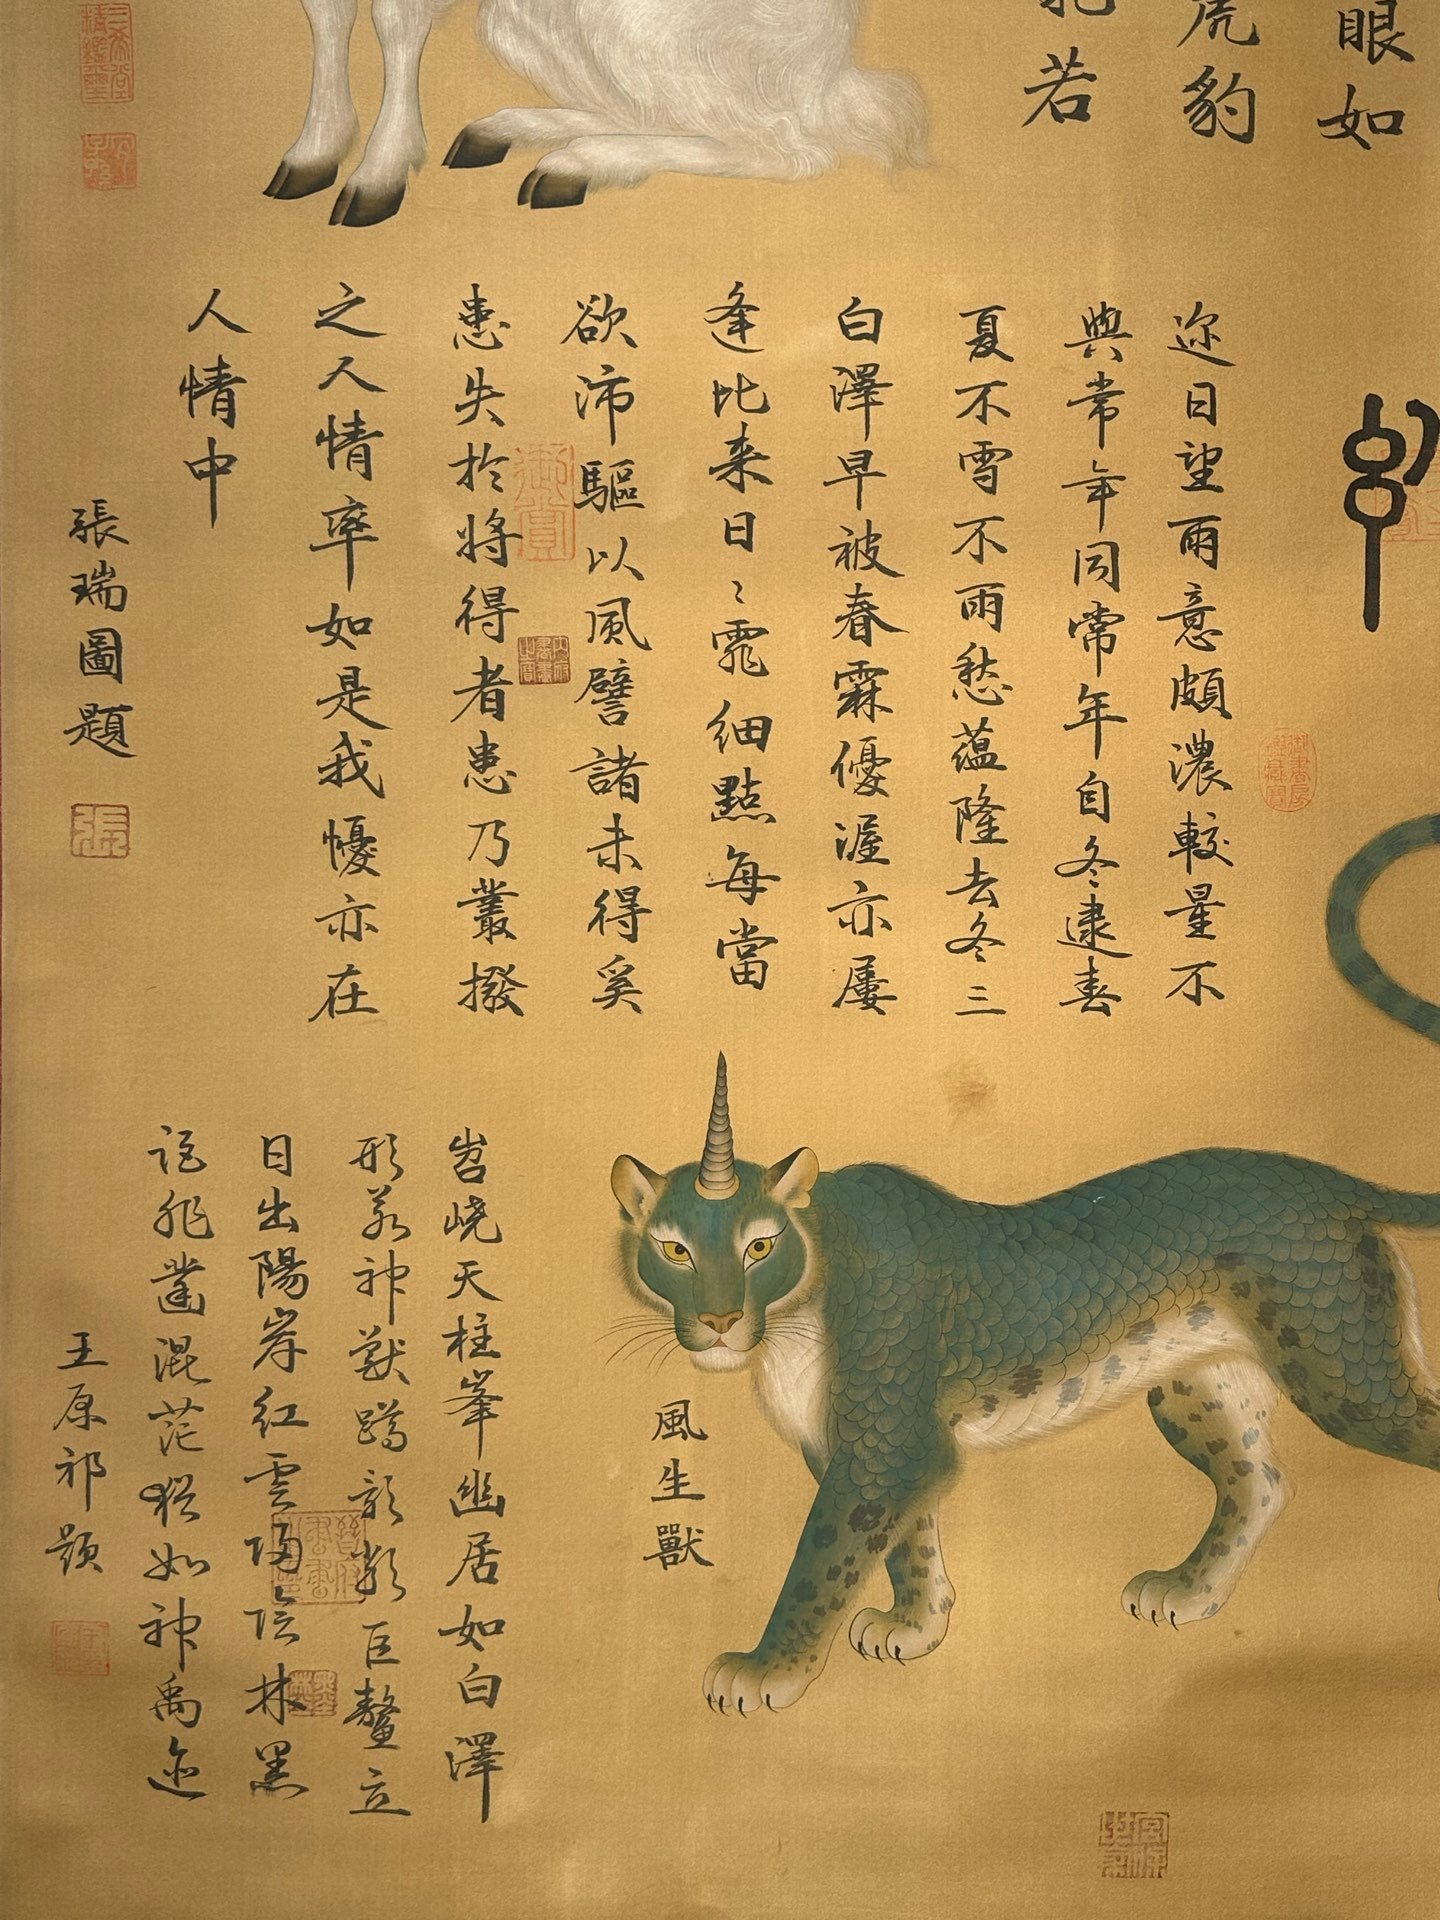 眼如
虎豹
若
迩日望雨意頗濃較量不
與常年同常年自冬逮春
夏不雪不雨愁蘊隆去冬三
白澤早被春霖優渥亦屢
逢比来日〻霏細點每當
欲沛驅以風譬諸未得奚
患失於將得者患乃叢撥
之人情率如是我懮亦在
人情中
張瑞圖題
風生獸
岧峣天柱峯幽居如白澤
形若神獸蹲影類巨鰲立
日出陽岸紅雲歸陰林黑
詎非鑿混茫猶如神禹迹
王原祁題